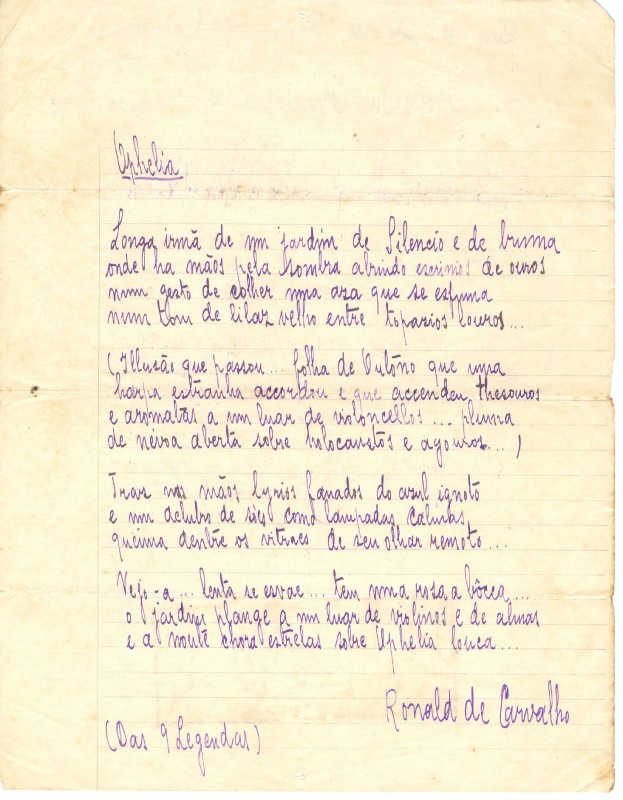 Ophelia
Longa irmã de um jardim de Silencio e de bruma
onde ha mãos pela sombra abrindo escrinios de ouros
num gesto de colher uma aza que se esfuma
num tom de lilaz velho entre topazios louros...
(Illusão que passou... folha de Outôno que uma
harpa estranha accordou e que accendeu thesouros
e aromatas a um luar de violoncellos... pluma
de nevoa aberta sobre holocaustos e agouros...)
Traz nas mãos lyrios fanados do azul ignoto
e um delubro de sóes como lampadas calmas,
queima dentre os vitraes de seu olhar remoto...
Vejo-a... lenta se esvae... tem uma rosa a bôcca...
o jardim plange a um luar de violinos e de almas
e a noute chora estrelas sobre Ophelia louca...
Ronald de Carvalho
(Das 9 Legendas)